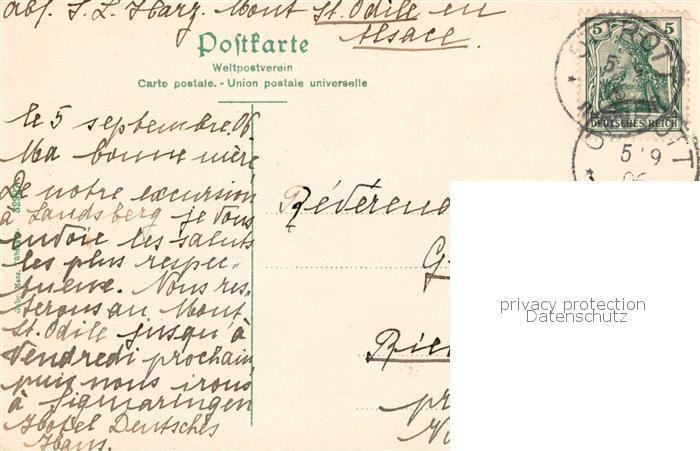 Abs. S. L. Harz. Mont St. Odile en
Alsace.
Postkarte
Weltpostverein
Carte postale. - Union postale universelle
5 5
DEUTSCHES REICH
OTTROTT
5 9
OTTROTT
5 9
06
le 5 septembre 06
Ma bonne mère
De notre excursion
à Landsberg je vous
envoie les saluts
les plus respec-
tueux. Nous res-
terons au Mont
St. Odile jusqu'à
Vendredi prochain
puis nous irons
à Sigmaringen
Hotel Deutsches
Haus.
Révéren
G
Rie
pr
privacy protection
Datenschutz